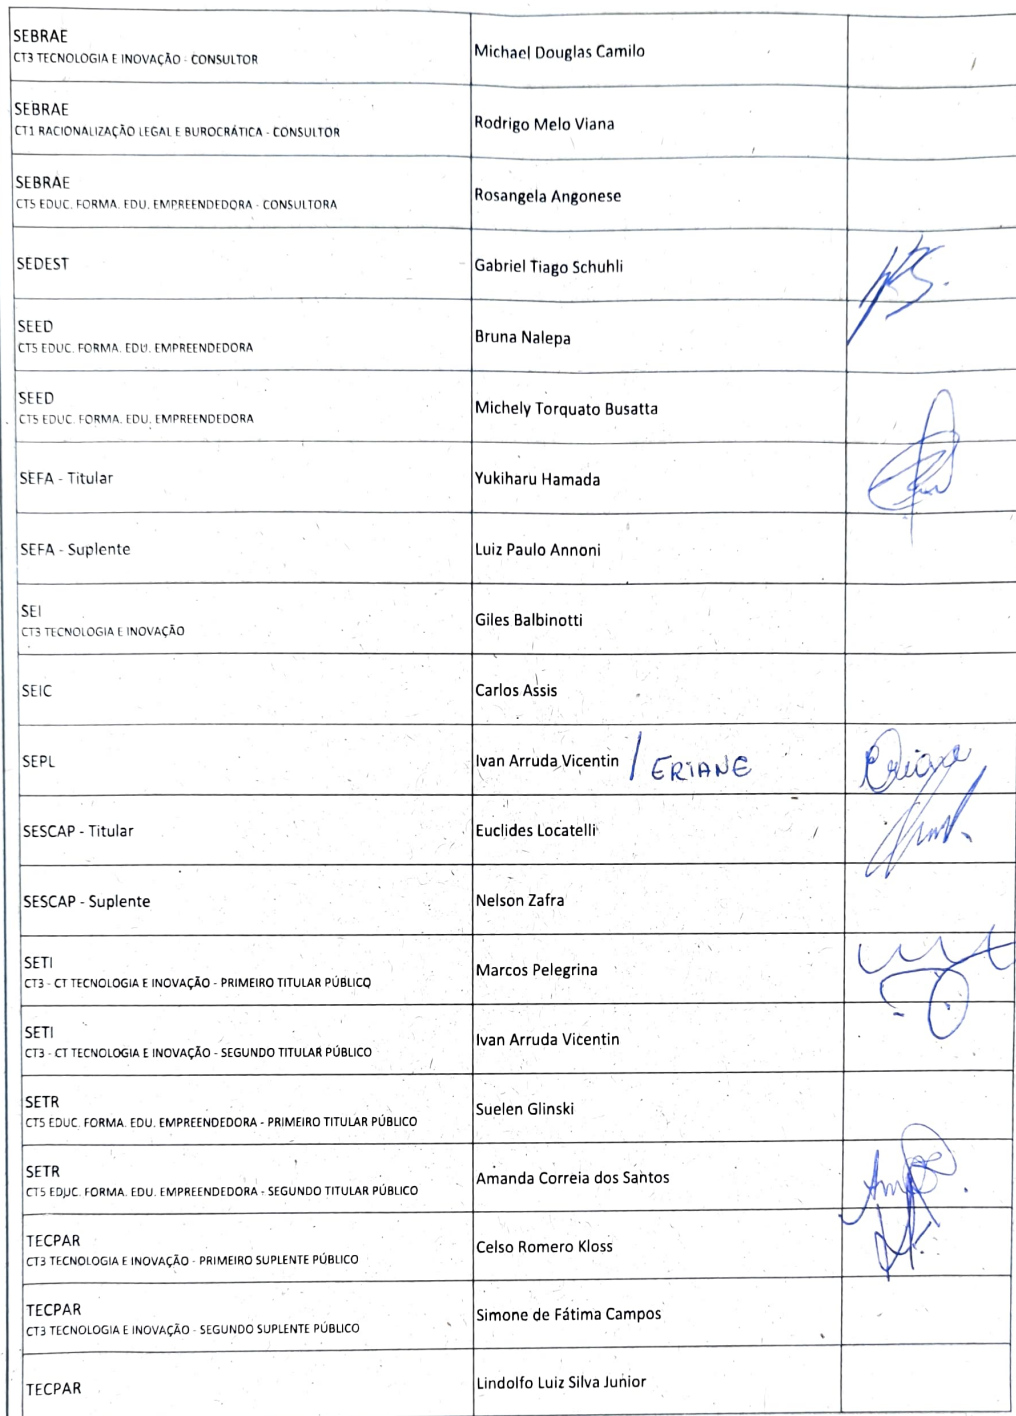 SEBRAE
CT3 TECNOLOGIA E INOVAÇÃO - CONSULTOR
Michael Douglas Camilo
SEBRAE
CT1 RACIONALIZAÇÃO LEGAL E BUROCRÁTICA - CONSULTOR
Rodrigo Melo Viana
SEBRAE
CT5 EDUC. FORMA. EDU. EMPREENDEDORA - CONSULTORA
Rosangela Angonese
SEDEST
Gabriel Tiago Schuhli
SEED
CT5 EDUC. FORMA. EDU. EMPREENDEDORA
Bruna Nalepa
SEED
CT5 EDUC. FORMA. EDU. EMPREENDEDORA
Michely Torquato Busatta
SEFA - Titular
Yukiharu Hamada
SEFA - Suplente
Luiz Paulo Annoni
SEI
CT3 TECNOLOGIA E INOVAÇÃO
Giles Balbinotti
SEIC
Carlos Assis
SEPL
Ivan Arruda Vicentin / ERIANE
SESCAP - Titular
Euclides Locatelli
SESCAP - Suplente
Nelson Zafra
SETI
CT3 - CT TECNOLOGIA E INOVAÇÃO - PRIMEIRO TITULAR PÚBLICO
Marcos Pelegrina
SETI
CT3 - CT TECNOLOGIA E INOVAÇÃO - SEGUNDO TITULAR PÚBLICO
Ivan Arruda Vicentin
SETR
CT5 EDUC. FORMA. EDU. EMPREENDEDORA - PRIMEIRO TITULAR PÚBLICO
Suelen Glinski
SETR
CT5 EDUC. FORMA. EDU. EMPREENDEDORA - SEGUNDO TITULAR PÚBLICO
Amanda Correia dos Santos
TECPAR
CT3 TECNOLOGIA E INOVAÇÃO - PRIMEIRO SUPLENTE PÚBLICO
Celso Romero Kloss
TECPAR
CT3 TECNOLOGIA E INOVAÇÃO - SEGUNDO SUPLENTE PÚBLICO
Simone de Fátima Campos
TECPAR
Lindolfo Luiz Silva Junior